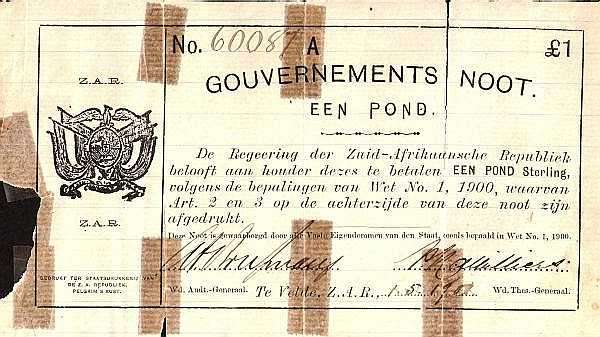 No. 60087 A £1
Z.A.R.
GOUVERNEMENTS NOOT.
EEN POND.
De Regeering der Zuid-Afrikaansche Republiek
belooft aan houder dezes te betalen EEN POND Sterling,
volgens de bepalingen van Wet No. 1, 1900, waarvan
Art. 2 en 3 op de achterzijde van deze noot zijn
afgedrukt.
Z.A.R.
Deze Noot is gewaarborgd door alle Vaste Eigendommen van den Staat, zooals bepaald in Wet No. 1, 1900.
GEDRUKT TER STAATSDRUKKERIJ VAN
DE Z. A. REPUBLIEK,
PELGRIM'S RUST.
Wd. Audt.-Generaal. Te Velde, Z.A.R., 1.5.1901 Wd. Thes.-Generaal.